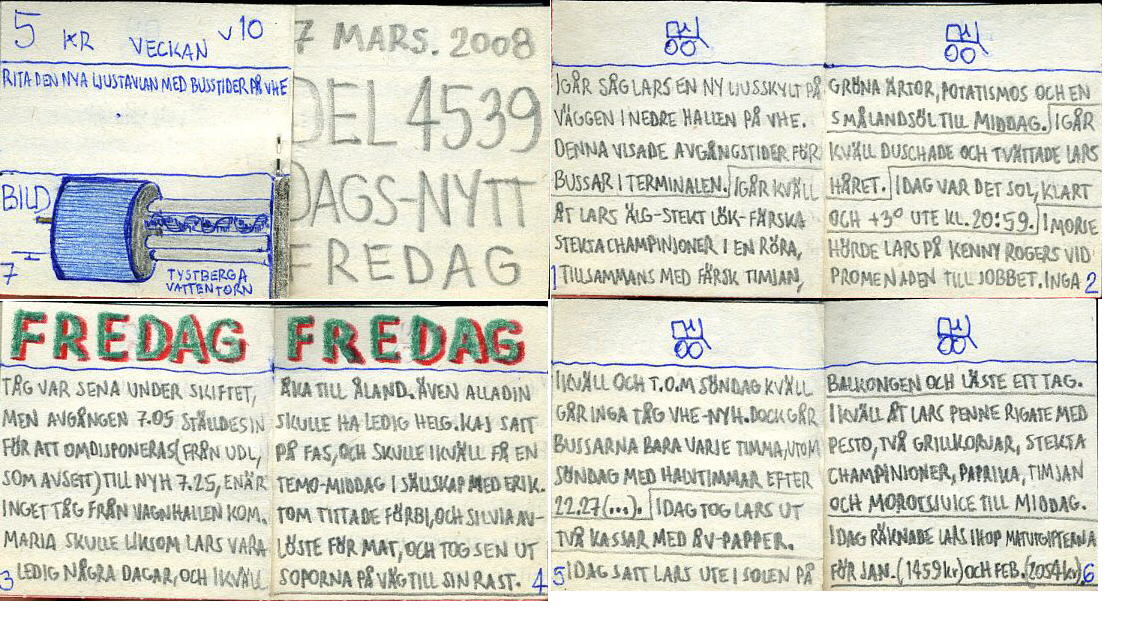 5 KR VECKAN V10
RITA DEN NYA LJUSTAVLAN MED BUSSTIDER PÅ VHE
BILD
7
TYSTBERGA
VATTENTORN
7 MARS. 2008
DEL 4539
DAGS-NYTT
FREDAG
IGÅR SÅG LARS EN NY LJUSSKYLT PÅ
VÄGGEN I NEDRE HALLEN PÅ VHE.
DENNA VISADE AVGÅNGSTIDER FÖR
BUSSAR I TERMINALEN. IGÅR KVÄLL
ÅT LARS ÄLG-STEKT LÖK-FÄRSKA
STEKTA CHAMPINJONER I EN RÖRA,
1 TILLSAMMANS MED FÄRSK TIMJAN,
GRÖNA ÄRTOR, POTATISMOS OCH EN
SMÅLANDSÖL TILL MIDDAG. IGÅR
KVÄLL DUSCHADE OCH TVÄTTADE LARS
HÅRET. IDAG VAR DET SOL, KLART
OCH +3° UTE KL. 20:59. IMORSE
HÖRDE LARS PÅ KENNY ROGERS VID
PROMENADEN TILL JOBBET. INGA 2
FREDAG
TÅG VAR SENA UNDER SKIFTET,
MEN AVGÅNGEN 7.05 STÄLLDES IN
FÖR ATT OMDISPONERAS (FRÅN UDL,
SOM AVSETT) TILL NYH 7.25, ENÄR
INGET TÅG FRÅN VAGNHALLEN KOM.
MARIA SKULLE LIKSOM LARS VARA
3 LEDIG NÅGRA DAGAR, OCH IKVÄLL
FREDAG
ÅKA TILL ÅLAND. ÄVEN ALLADIN
SKULLE HA LEDIG HELG. KAJ SATT
PÅ FAS, OCH SKULLE IKVÄLL FÅ EN
TEMO-MIDDAG I SÄLLSKAP MED ERIK.
TOM TITTADE FÖRBI, OCH SILVIA AV-
LÖSTE FÖR MAT, OCH TOG SEN UT
SOPORNA PÅ VÄG TILL SIN RAST. 4
IKVÄLL OCH T.O.M SÖNDAG KVÄLL
GÅR INGA TÅG VHE-NYH. DOCK GÅR
BUSSARNA BARA VARJE TIMMA, UTOM
SÖNDAG MED HALVTIMMAR EFTER
22.27 (...). IDAG TOG LARS UT
TVÅ KASSAR MED ÅV-PAPPER.
5 IDAG SATT LARS UTE I SOLEN PÅ
BALKONGEN OCH LÄSTE ETT TAG.
IKVÄLL ÅT LARS PENNE RIGATE MED
PESTO, TVÅ GRILLKORVAR, STEKTA
CHAMPINJONER, PAPRIKA, TIMJAN
OCH MOROTSJUICE TILL MIDDAG.
IDAG RÄKNADE LARS IHOP MATUTGIFTERNA
FÖR JAN. (1459kr) OCH FEB. (2054kr). 6